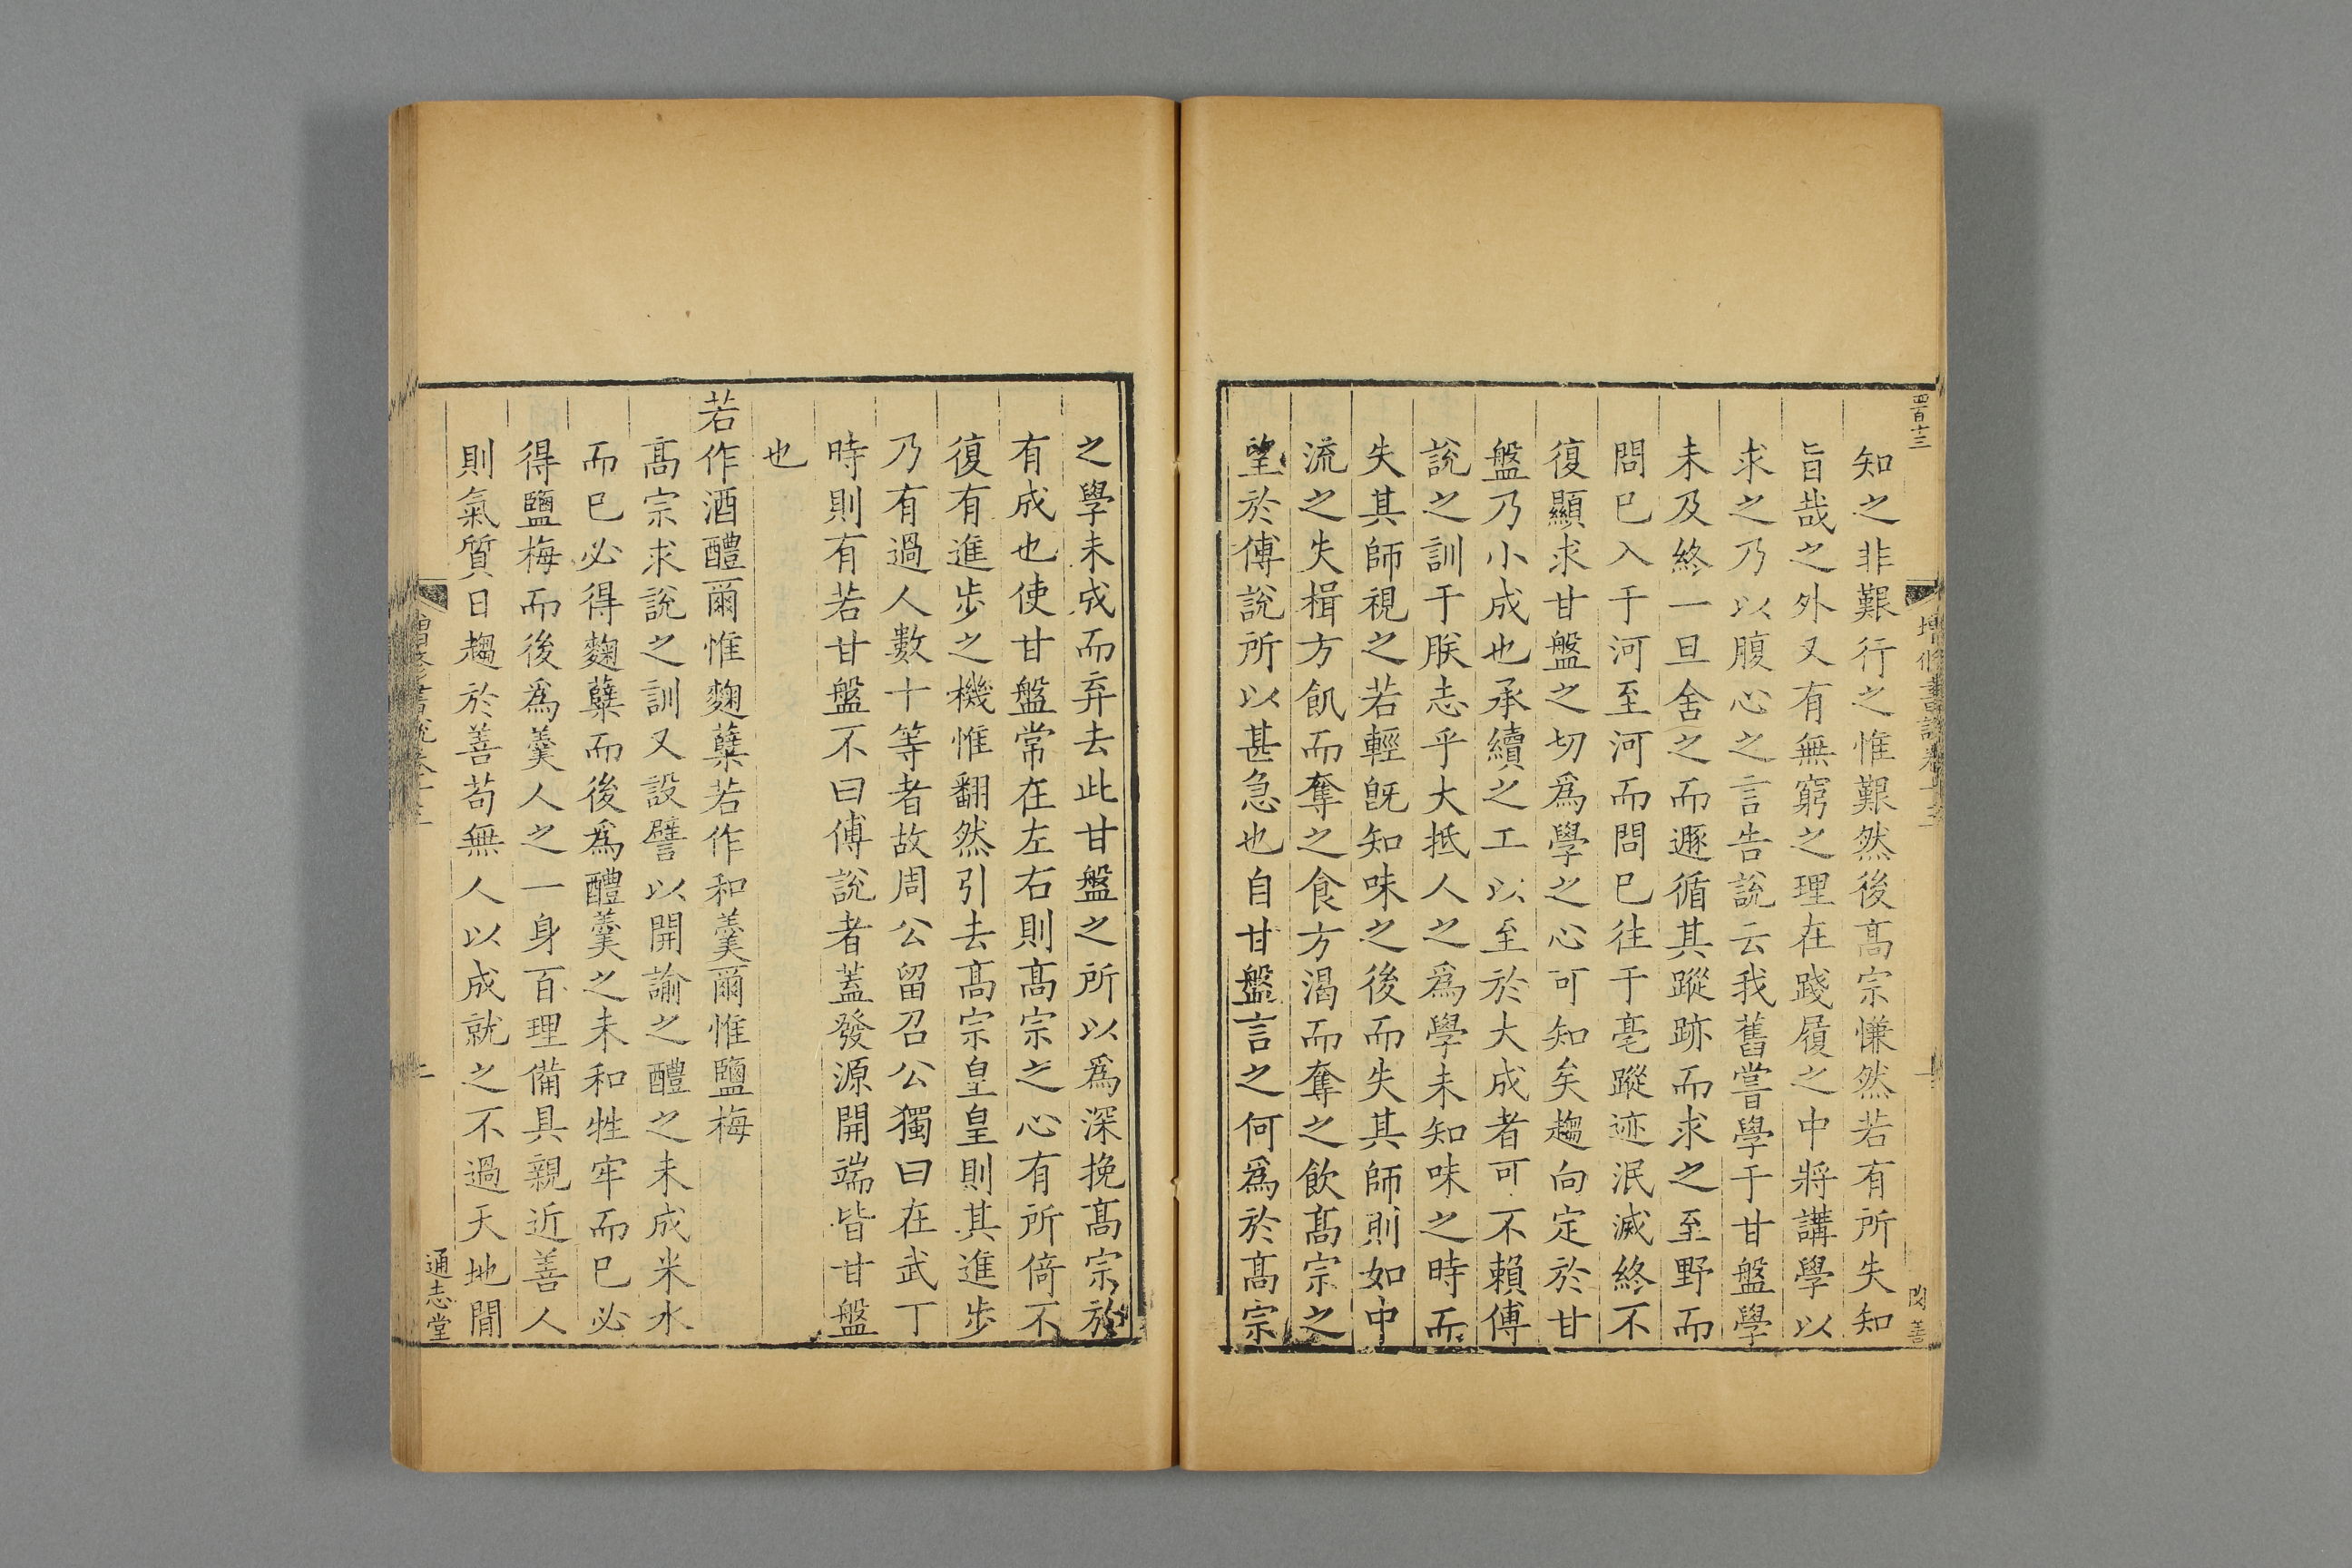 四百十三
知之非艱行之惟艱然後髙宗慊然若有所失知
旨哉之外又有無窮之理在踐履之中將講學以
求之乃以腹心之言告說云我舊嘗學于甘盤學
未及終一旦舍之而遯循其蹤跡而求之至野而
問已入于河至河而問已徃于亳蹤迹泯滅終不
復顯求甘盤之切爲學之心可知矣趨向定於甘
盤乃小成也承續之工以至於大成者可不賴傅
說之訓于朕志乎大抵人之爲學未知味之時而
失其師視之若輕旣知味之後而失其師則如中
流之失楫方飢而奪之食方渴而奪之飲髙宗之
望於傅說所以甚急也自甘盤言之何爲於髙宗
之學未成而弃去此甘盤之所以爲深挽髙宗於
有成也使甘盤常在左右則髙宗之心有所倚不
復有進步之機惟翻然引去髙宗皇皇則其進步
乃有過人數十等者故周公留召公獨曰在武丁
時則有若甘盤不曰傅說者蓋發源開端皆甘盤
也
若作酒醴爾惟麴糵若作和羹爾惟鹽梅
髙宗求說之訓又設譬以開諭之醴之未成米水
而已必得麴糵而後爲醴羹之未和牲牢而已必
得鹽梅而後爲羹人之一身百理備具親近善人
則氣質日趨於善茍無人以成就之不過天地閒
通志堂